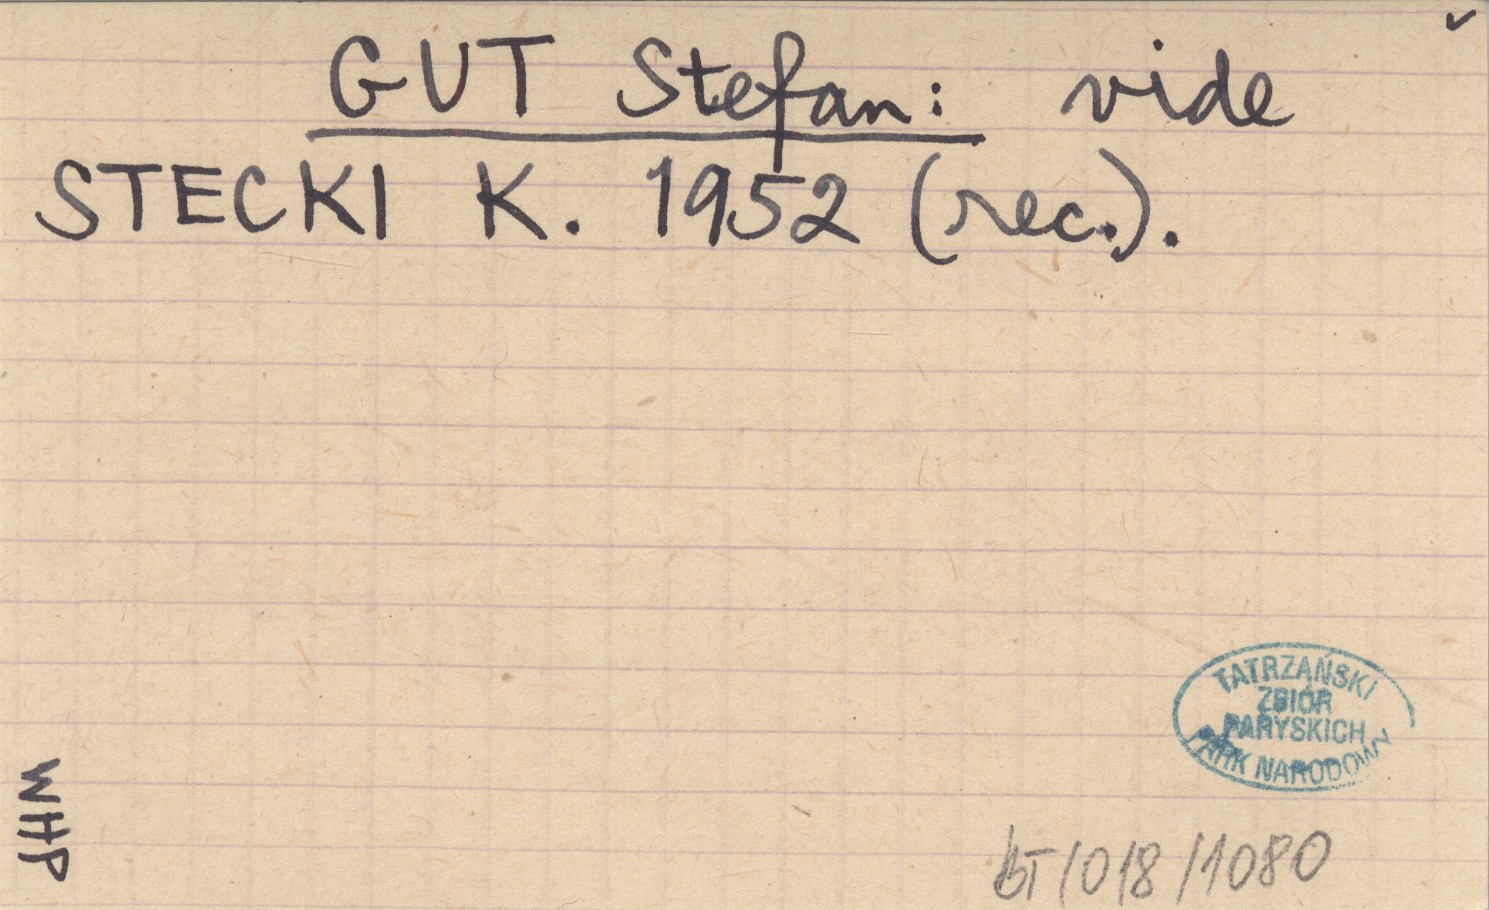 GUT Stefan: vide
STECKI K. 1952 (rec.).
TATRZAŃSKI
ZBIÓR
PARYSKICH
PARK NARODOWY
WHP
BT/018/1080